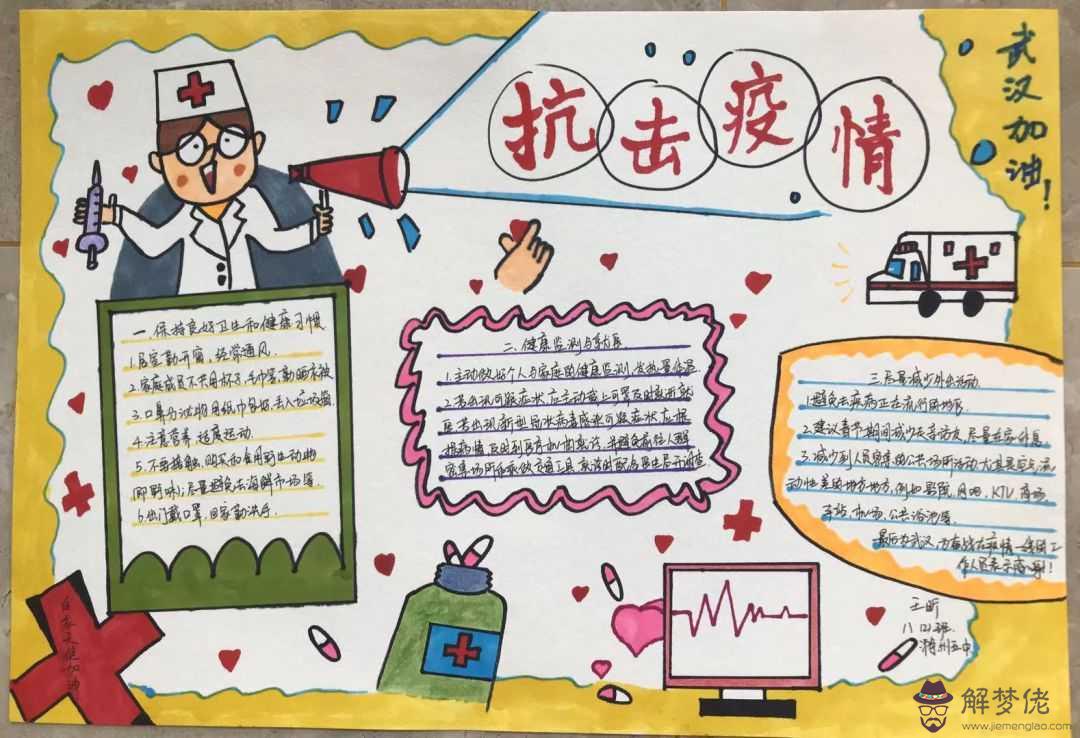 抗击疫情
武汉加油!
一.保持良好卫生和健康习惯
1.居室勤开窗,经常通风.
2.家庭成员不共用杯子、毛巾等,勤晒衣被
3.口鼻分泌物用纸巾包好,丢入垃圾箱.
4.注意营养.适度运动.
5.不要接触、购买和食用野生动物
(即野味);尽量避免去海鲜市场等
6.出门戴口罩,回家勤洗手.
二.健康监测与就医
1.主动做好个人与家庭的健康监测,发热量体温.
2.若出现可疑症状,应主动戴上口罩及时就近就
医.若出现新型冠状病毒感染可疑症状,应根
据病情,及时到医疗机构就诊.并避免前往人群
密集场所和乘做交通工具.
三.尽量减少外出活动.
1.避免去疾病正在流行的地区.
2.建议春节期间减少走亲访友,尽量在家休息.
3.减少到人员密集的公共场所活动,尤其是空气流
动性差的地方地方,例如:影院、网吧、KTV、商场、
车站、机场、公共浴池等.
最后为武汉,为奋战在疫情一线的工
作人员表示感谢!
八(2)班.
白衣天使加油
解梦佬
www.jiemenglao.com